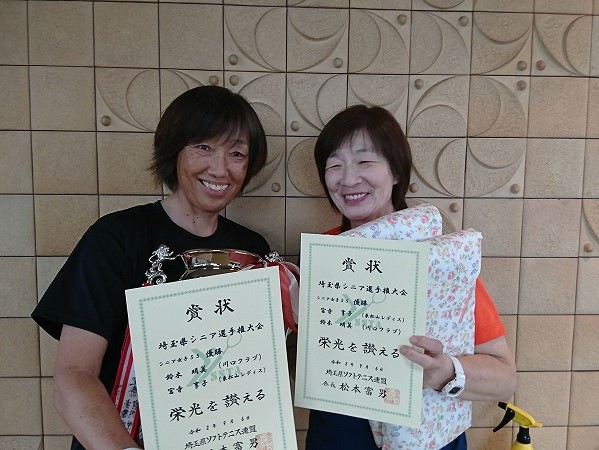 賞状
埼玉県シニア選手権大会
シニア女子55 優勝
鈴木 明美 (川口クラブ)
宮寺 享子 (東松山レディス)
栄光を讃える
令和2年9月6日
埼玉県ソフトテニス連盟
松本富男
賞状
埼玉県シニア選手権大会
シニア女子55 優勝
宮寺 享子 (東松山レディス)
鈴木 明美 (川口クラブ)
栄光を讃える
令和2年9月6日
埼玉県ソフトテニス連盟
会長 松本富男